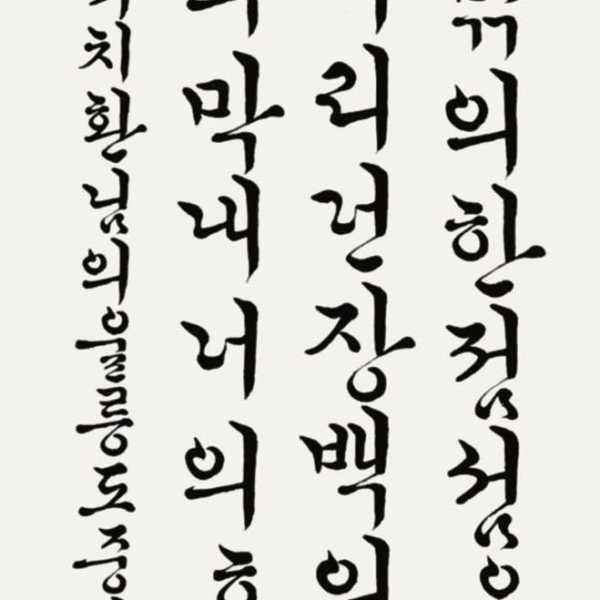 의한점섬
리던장백의
막내너의
치환님의울릉도중